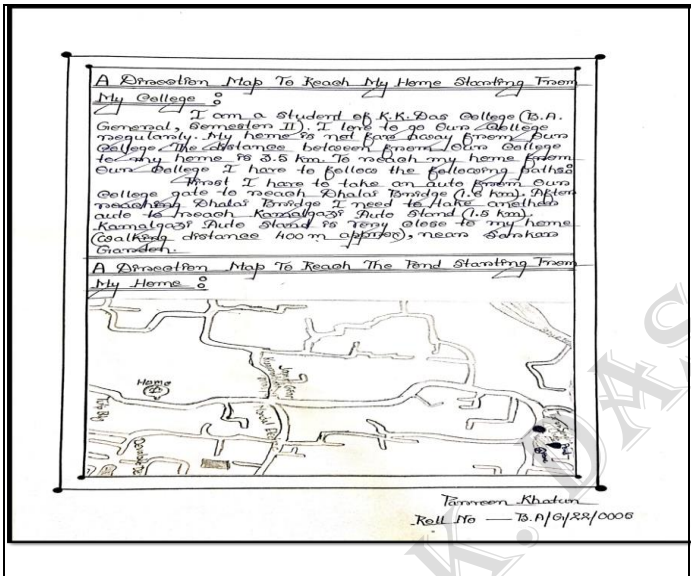 A Direction Map To Reach My Home Starting From
My College :
I am a student of K.K. Das College (B.A.
General, Semester II). I love to go Our College
regularly. My home is not fare away from Our
College. The distance between from Our College
to my home is 3.5 km. To reach my home from
Our College I have to follow the following paths:
First I have to take an auto from Our
College gate to reach Dhalai Bridge (1.6 km). After
reaching Dhalai Bridge I need to take another
auto to reach Kamalgazi Auto Stand (1.5 km).
Kamalgazi Auto Stand is very close to my home
(walking distance 400 m approx), near
Garden.
A Direction Map To Reach The Pond Starting From
My Home :
Home
Pond
Parveen Khatun
Roll No — B.A/G/22/0006
K. DAS